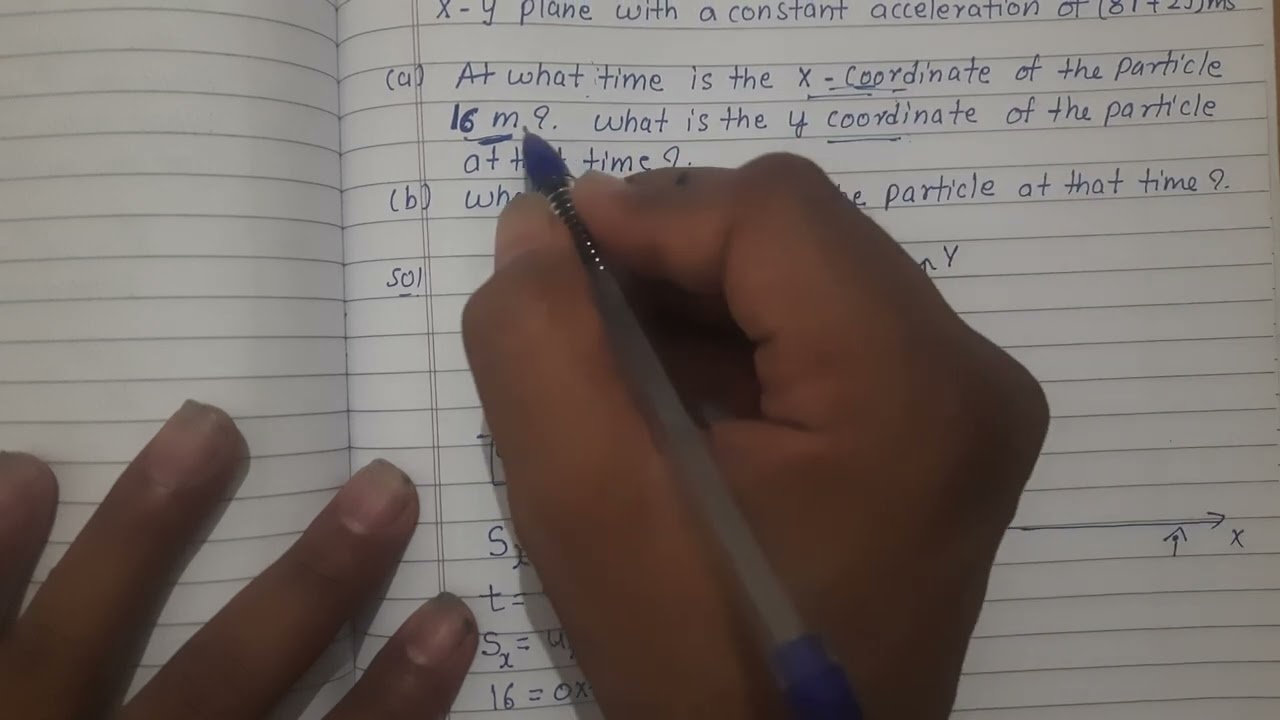 x-y plane with a constant acceleration of (8i+2j)ms
(a) At what time is the x-coordinate of the particle
16 m?. what is the y coordinate of the particle
at time?.
(b) particle at that time?.
Sol
Y
X
Sx
t=
Sx=
16 = 0x